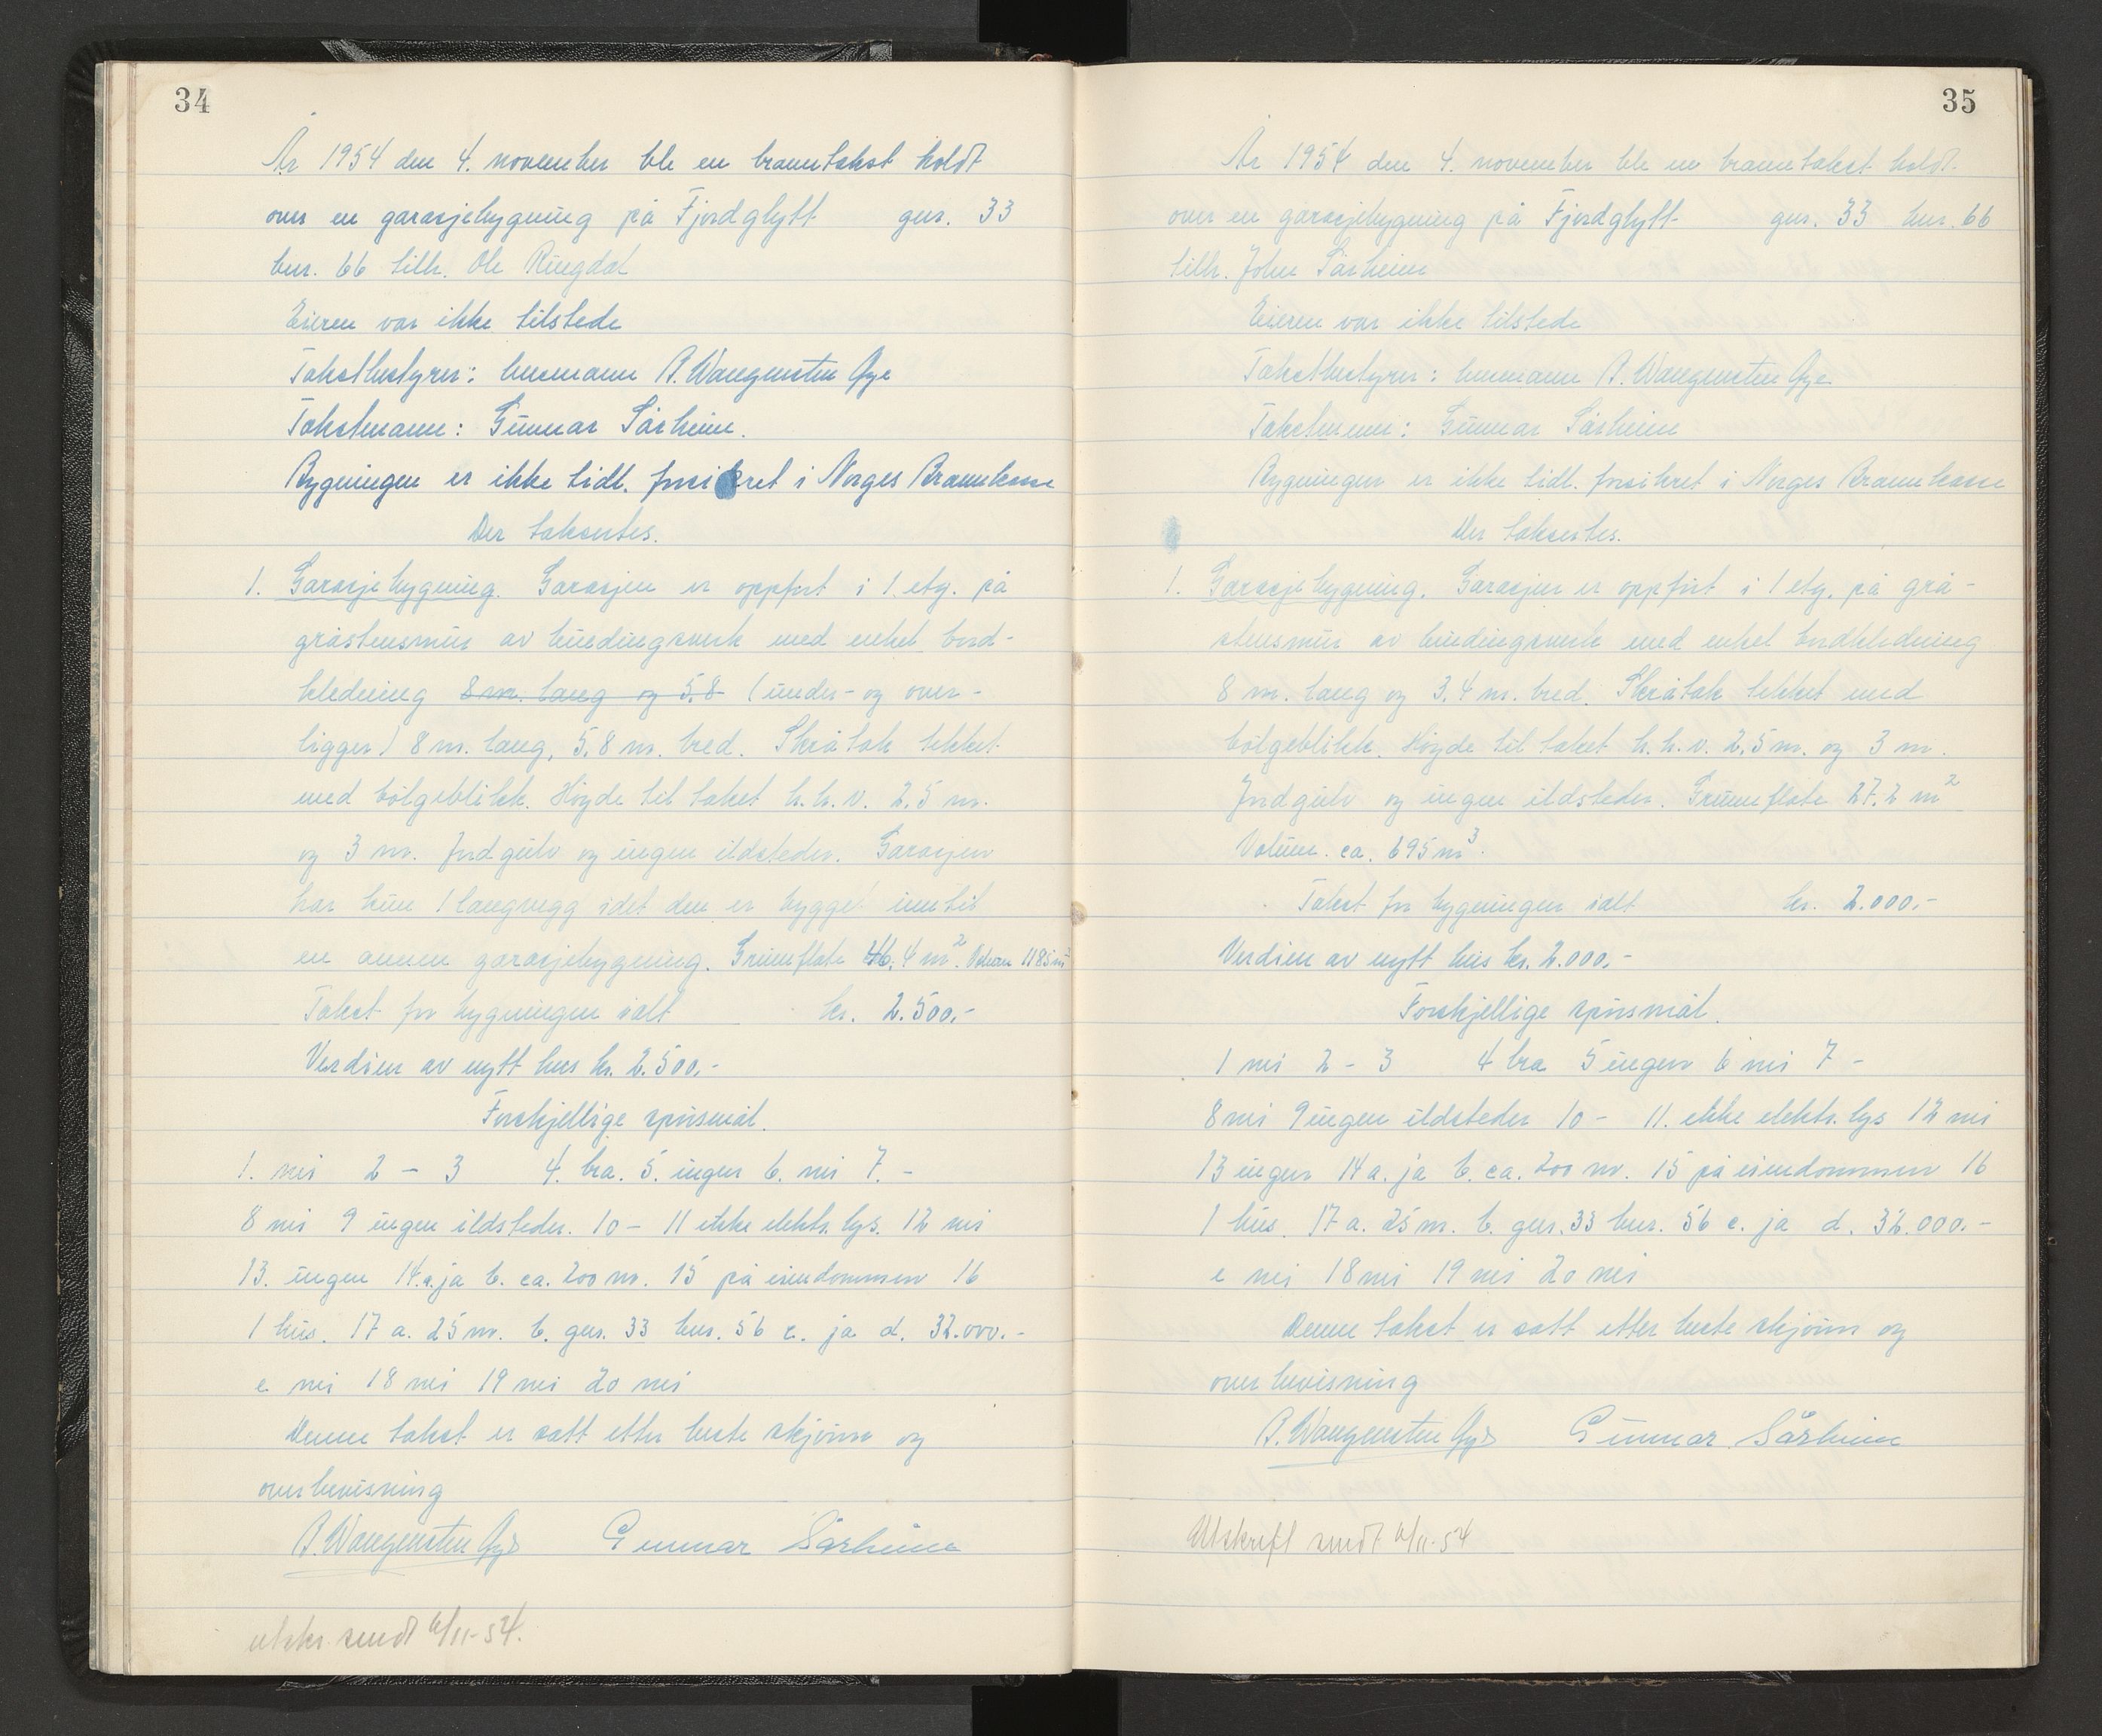 34
År 1954 den 4. november ble en branntakst holdt
over en garasjebygning på Fjordglytt gnr. 33
bnr. 66 tilh. Ole Ringdal
Eieren var ikke tilstede
Takstbestyrer: lensmann B. Wangensten Gye
Takstmann: Gunnar Sårheim.
Bygningen er ikke tidl. forsikret i Norges Brannkasse
Der taksertes.
1. Garasjebygning. Garasjen er oppført i 1 etg. på
gråstensmur av bindingsverk med enkel bord-
kledning 8 m. lang og 5.8 (under- og over-
ligger) 8 m. lang, 5,8 m. bred. Skråtak tekket
med bølgeblikk. Høyde til taket h.h.v. 2,5 m.
og 3 m. Jordgulv og ingen ildsteder. Garasjen
har kun 1 langvegg idet den er bygget inntil
en annen garasjebygning. Grunnflate 46,4 m². Volum 118 5 m³
Takst for bygningen ialt kr. 2.500,-
Verdien av nytt hus kr. 2.500,-
Forskjellige spørsmål.
1. nei 2 - 3 4. bra. 5. ingen 6. nei 7. -
8 nei 9 ingen ildsteder. 10 - 11 ikke elektr. lys. 12 nei
13. ingen 14.a. ja b. ca. 200 m. 15 på eiendommen 16
1 hus. 17 a. 25 m. b. gnr. 33 bnr. 56 c. ja d. 32.000.-
e nei 18 nei 19 nei 20 nei
Denne takst er satt etter beste skjønn og
overbevisning
B. Wangensten Gye Gunnar Sårheim
utskr. sendt 6/11-54.
35
År 1954 den 4. november ble en branntakst holdt.
over en garasjebygning på Fjordglytt gnr. 33 bnr. 66
tilh. John Sårheim
Eieren var ikke tilstede
Takstbestyrer: lensmann B. Wangensten Gye
Takstmann: Gunnar Sårheim
Bygningen er ikke tidl. forsikret i Norges Brannkasse
Der taksertes.
1. Garasjebygning. Garasjen er oppført i 1 etg. på grå-
stensmur av bindingsverk med enkel bordkledning
8 m. lang og 3.4 m. bred. Skråtak tekket med
bølgeblikk. Høyde til taket h.h.v. 2,5 m. og 3 m.
Jordgulv og ingen ildsteder. Grunnflate 27.2 m²
Volum. ca. 695 m³.
Takst for bygningen ialt kr. 2.000.-
Verdien av nytt hus kr. 2.000.-
Forskjellige spørsmål.
1 nei 2 - 3 4 bra 5 ingen 6 nei 7 -
8 nei 9 ingen ildsteder 10 - 11. ikke elektr. lys 12 nei
13 ingen 14 a. ja b. ca. 200 m. 15 på eiendommen 16
1 hus. 17 a. 25 m. b. gnr. 33 bnr. 56 c. ja d. 32.000.-
e nei 18 nei 19 nei 20 nei
Denne takst er satt etter beste skjønn og
overbevisning
B. Wangensten Gye Gunnar Sårheim
Utskrift sendt 6/11-54